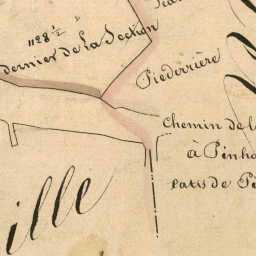 1128 ½
dernier de la Section
Piederrière
Chemin de l
à Pinho
patis de P
ille